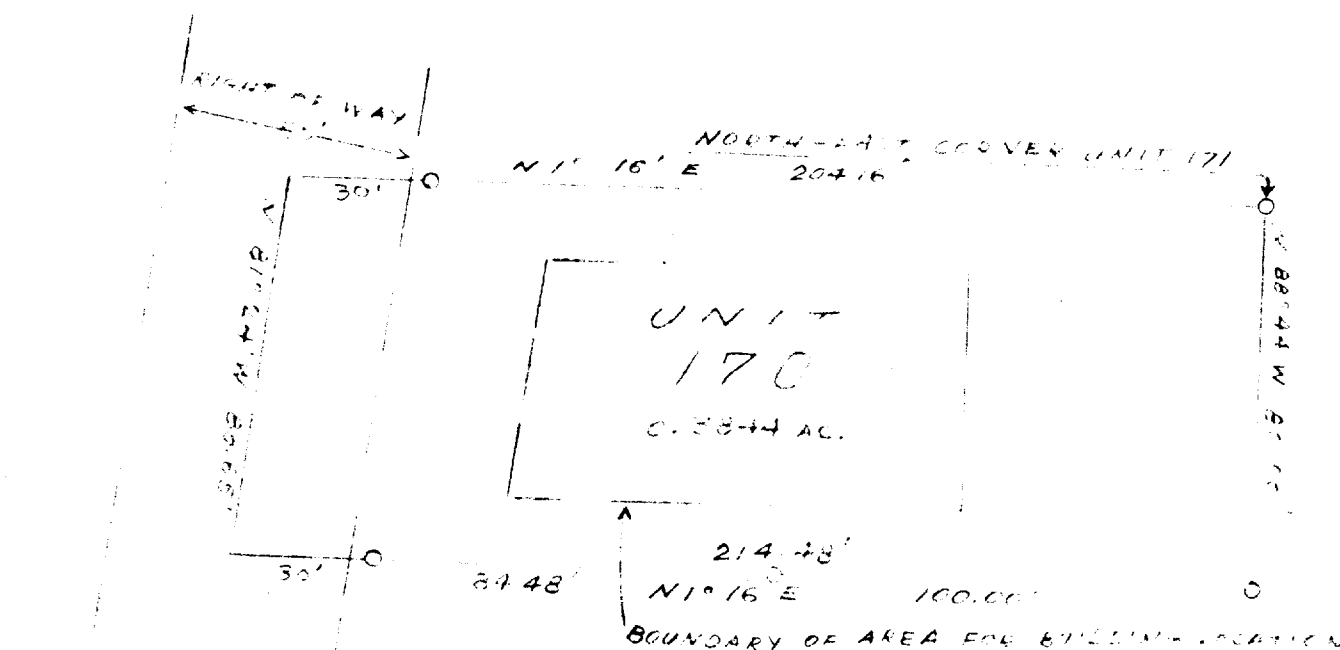 RIGHT OF WAY
NORTH-EAST CORNER UNIT 171
N 1° 16' E 204.16
30'
UNIT
170
0.3844 AC.
N 88°44 W
30'
214.48'
84.48'
N 1° 16' E
100.00'
BOUNDARY OF AREA FOR BUILDING LOCATION